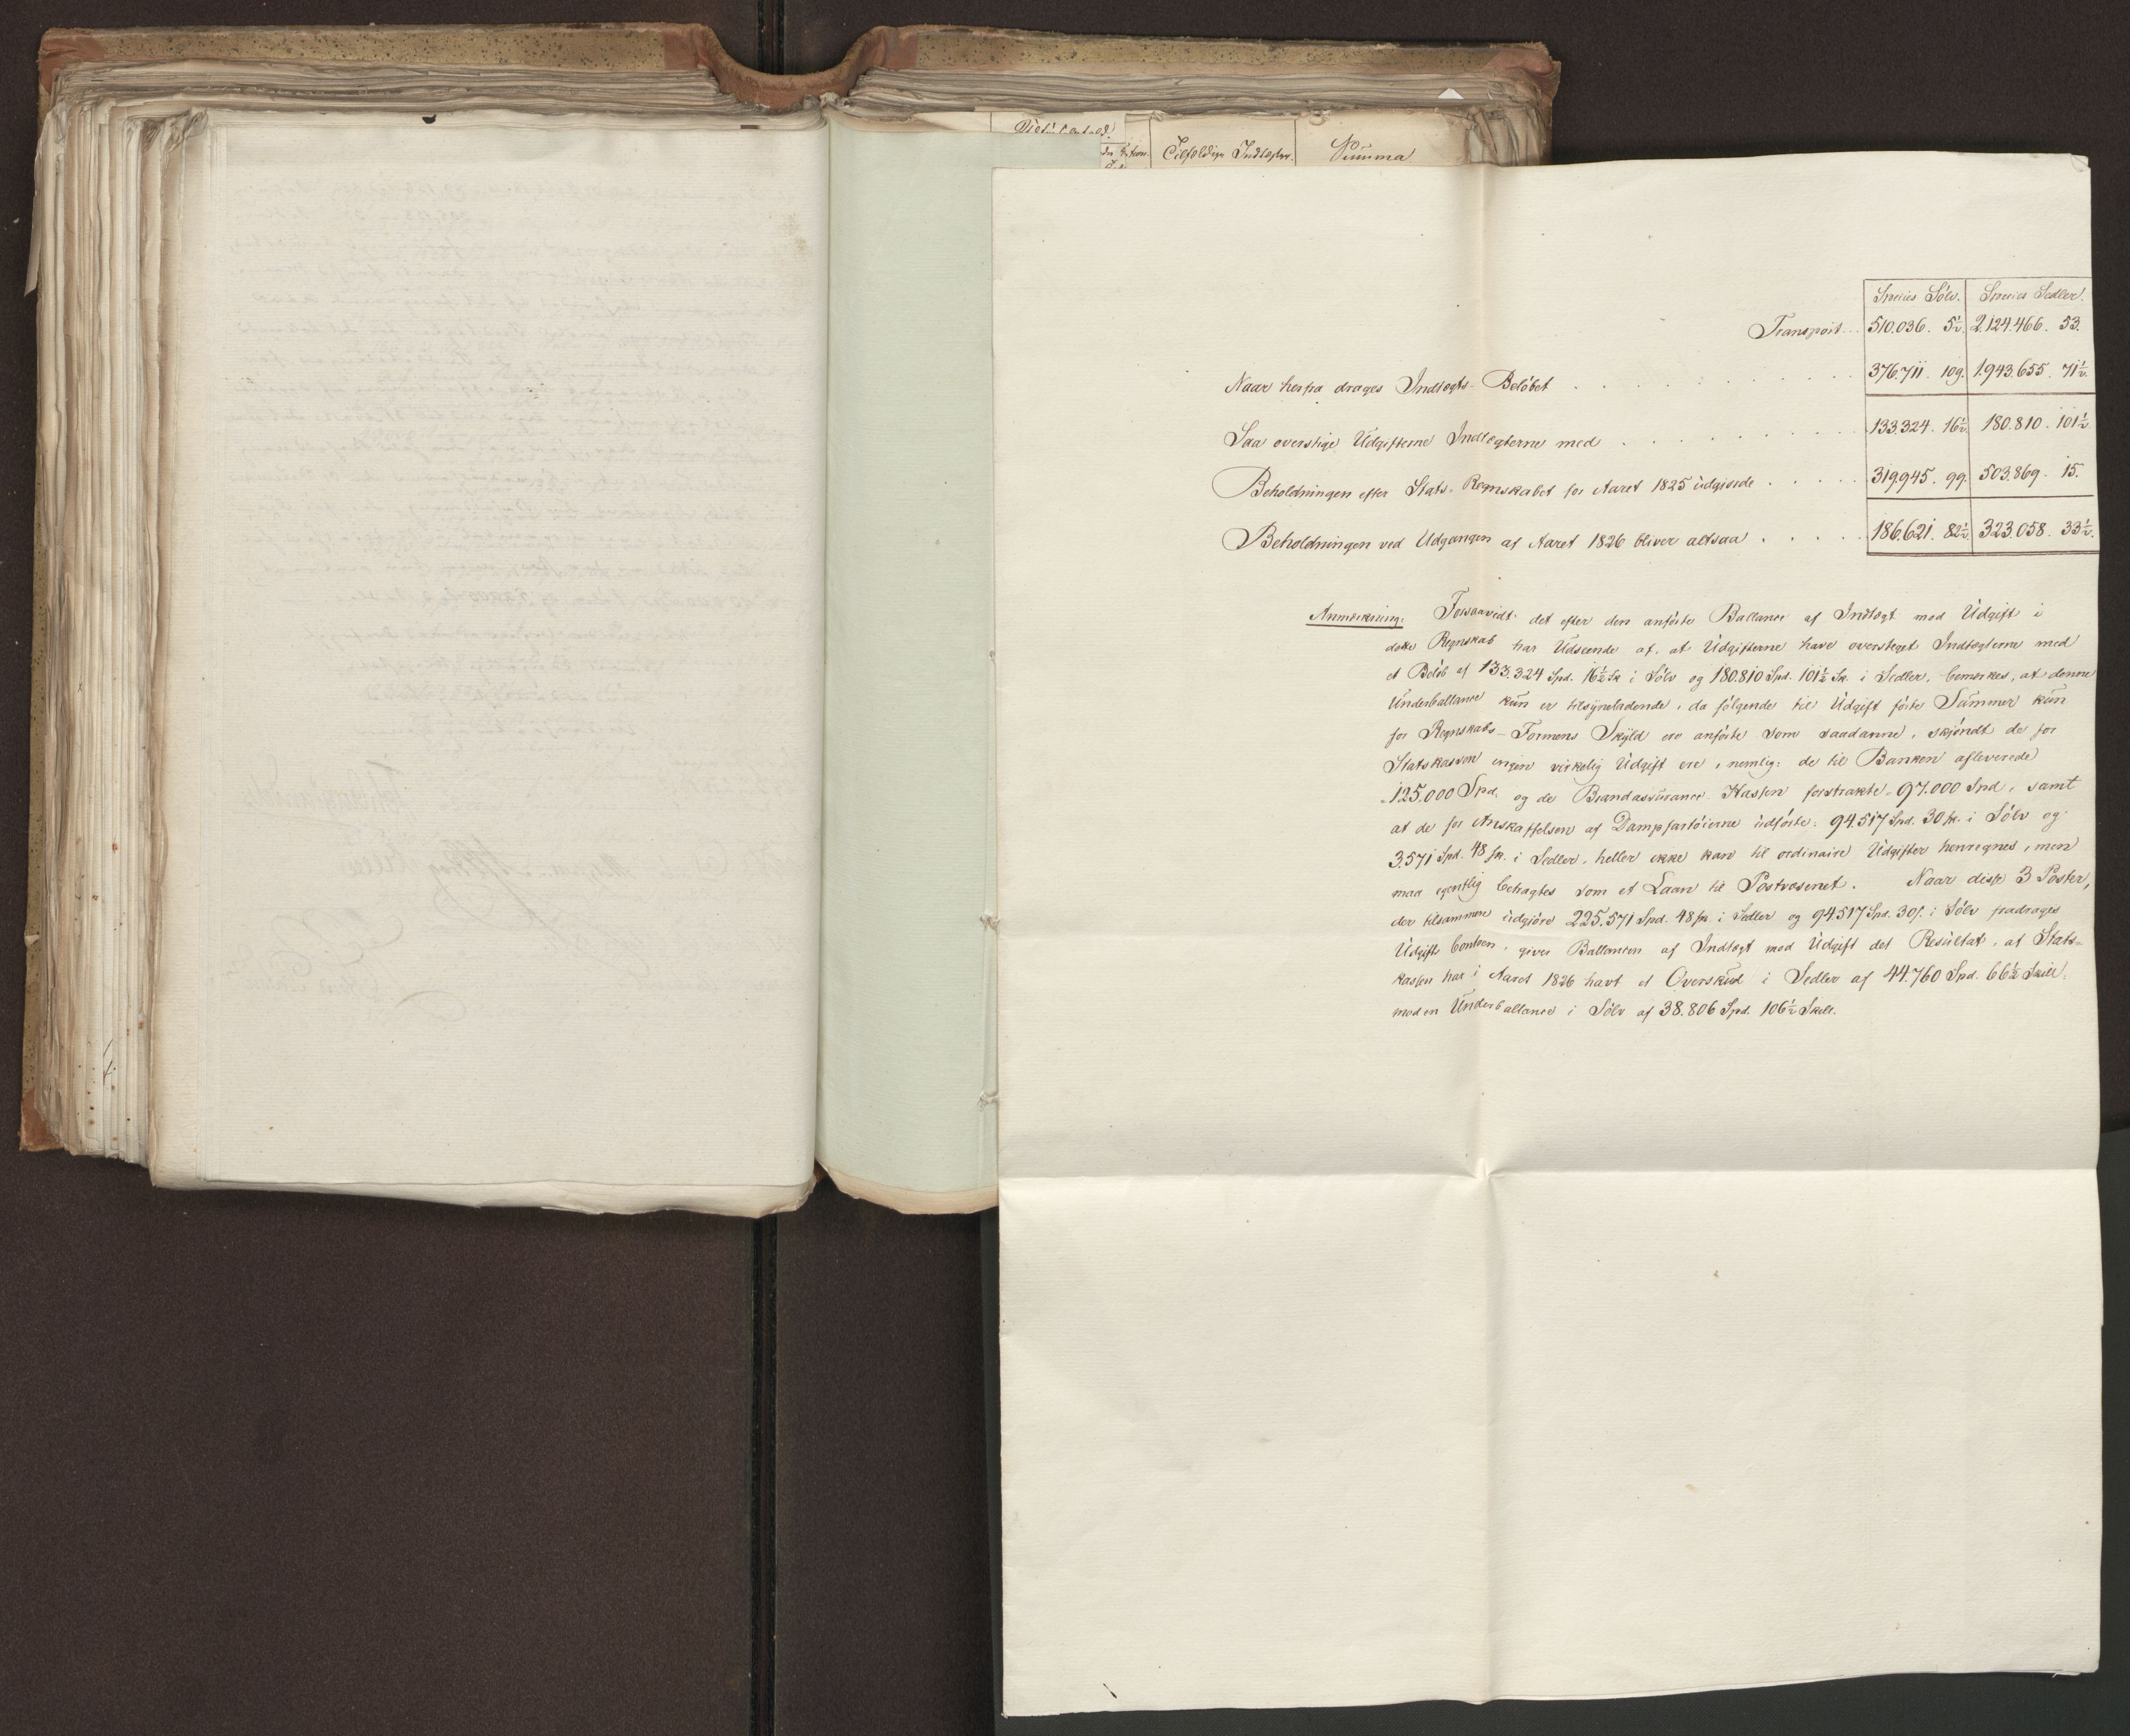 Tilfeldige Indtægter. Summa
Species Sølv. Species Sedler.
Transport... 510.036. 5½. 2.124.466. 53.
Naar herfra drages Indtægts-Beløbet . . . . . 376.711. 109. 1.943.655. 71½.
Saa overstige Udgifterne Indtægterne med . . . . . 133.324. 16½. 180.810. 101½.
Beholdningen efter Stats-Regnskabet for Aaret 1825 udgiorde . . . . . 319.945. 99. 503.869. 15.
Beholdningen ved Udgangen af Aaret 1826 bliver altsaa . . . . . 186.621. 82½. 323.058. 33½.
Anmærkning: Forsaavidt det efter den anførte Ballance af Indtægt mod Udgift i
dette Regnskab har Udseende af, at Udgifterne have oversteget Indtægterne med
et Beløb af 133.324 Spd. 16½ Sk i Sølv og 180.810 Spd. 101½ Sk. i Sedler, bemærkes, at denne
Underballance kun er tilsyneladende, da følgende til Udgift førte Summer kun
for Regnskabs-Formens Skyld ere anførte som saadanne, skjøndt de for
Statskassen ingen virkelig Udgift ere, nemlig: de til Banken afleverede
125.000 Spd. og de Brandassurance-Kassen forstrakte 97.000 Spd, samt
at de for Anskaffelsen af Dampfartøierne udførte: 94.517 Spd. 30 sk. i Sølv og
3.571 Spd. 48 sk. i Sedler, heller ikke kan til ordinaire Udgifter henregnes, men
maa egentlig betragtes som et Laan til Postvæsenet. Naar disse 3 Poster,
der tilsammen udgjøre 225.571 Spd. 48 sk. i Sedler og 94517 Spd. 30 s. i Sølv fradrages
Udgifts Contoen, giver Ballancen af Indtægt mod Udgift det Resultat, at Stats-
kassen har i Aaret 1826 havt et Overskud i Sedler af 44.760 Spd. 66½ Skill.
mod en Underballance i Sølv af 38.806 Spd. 106½ Skill.